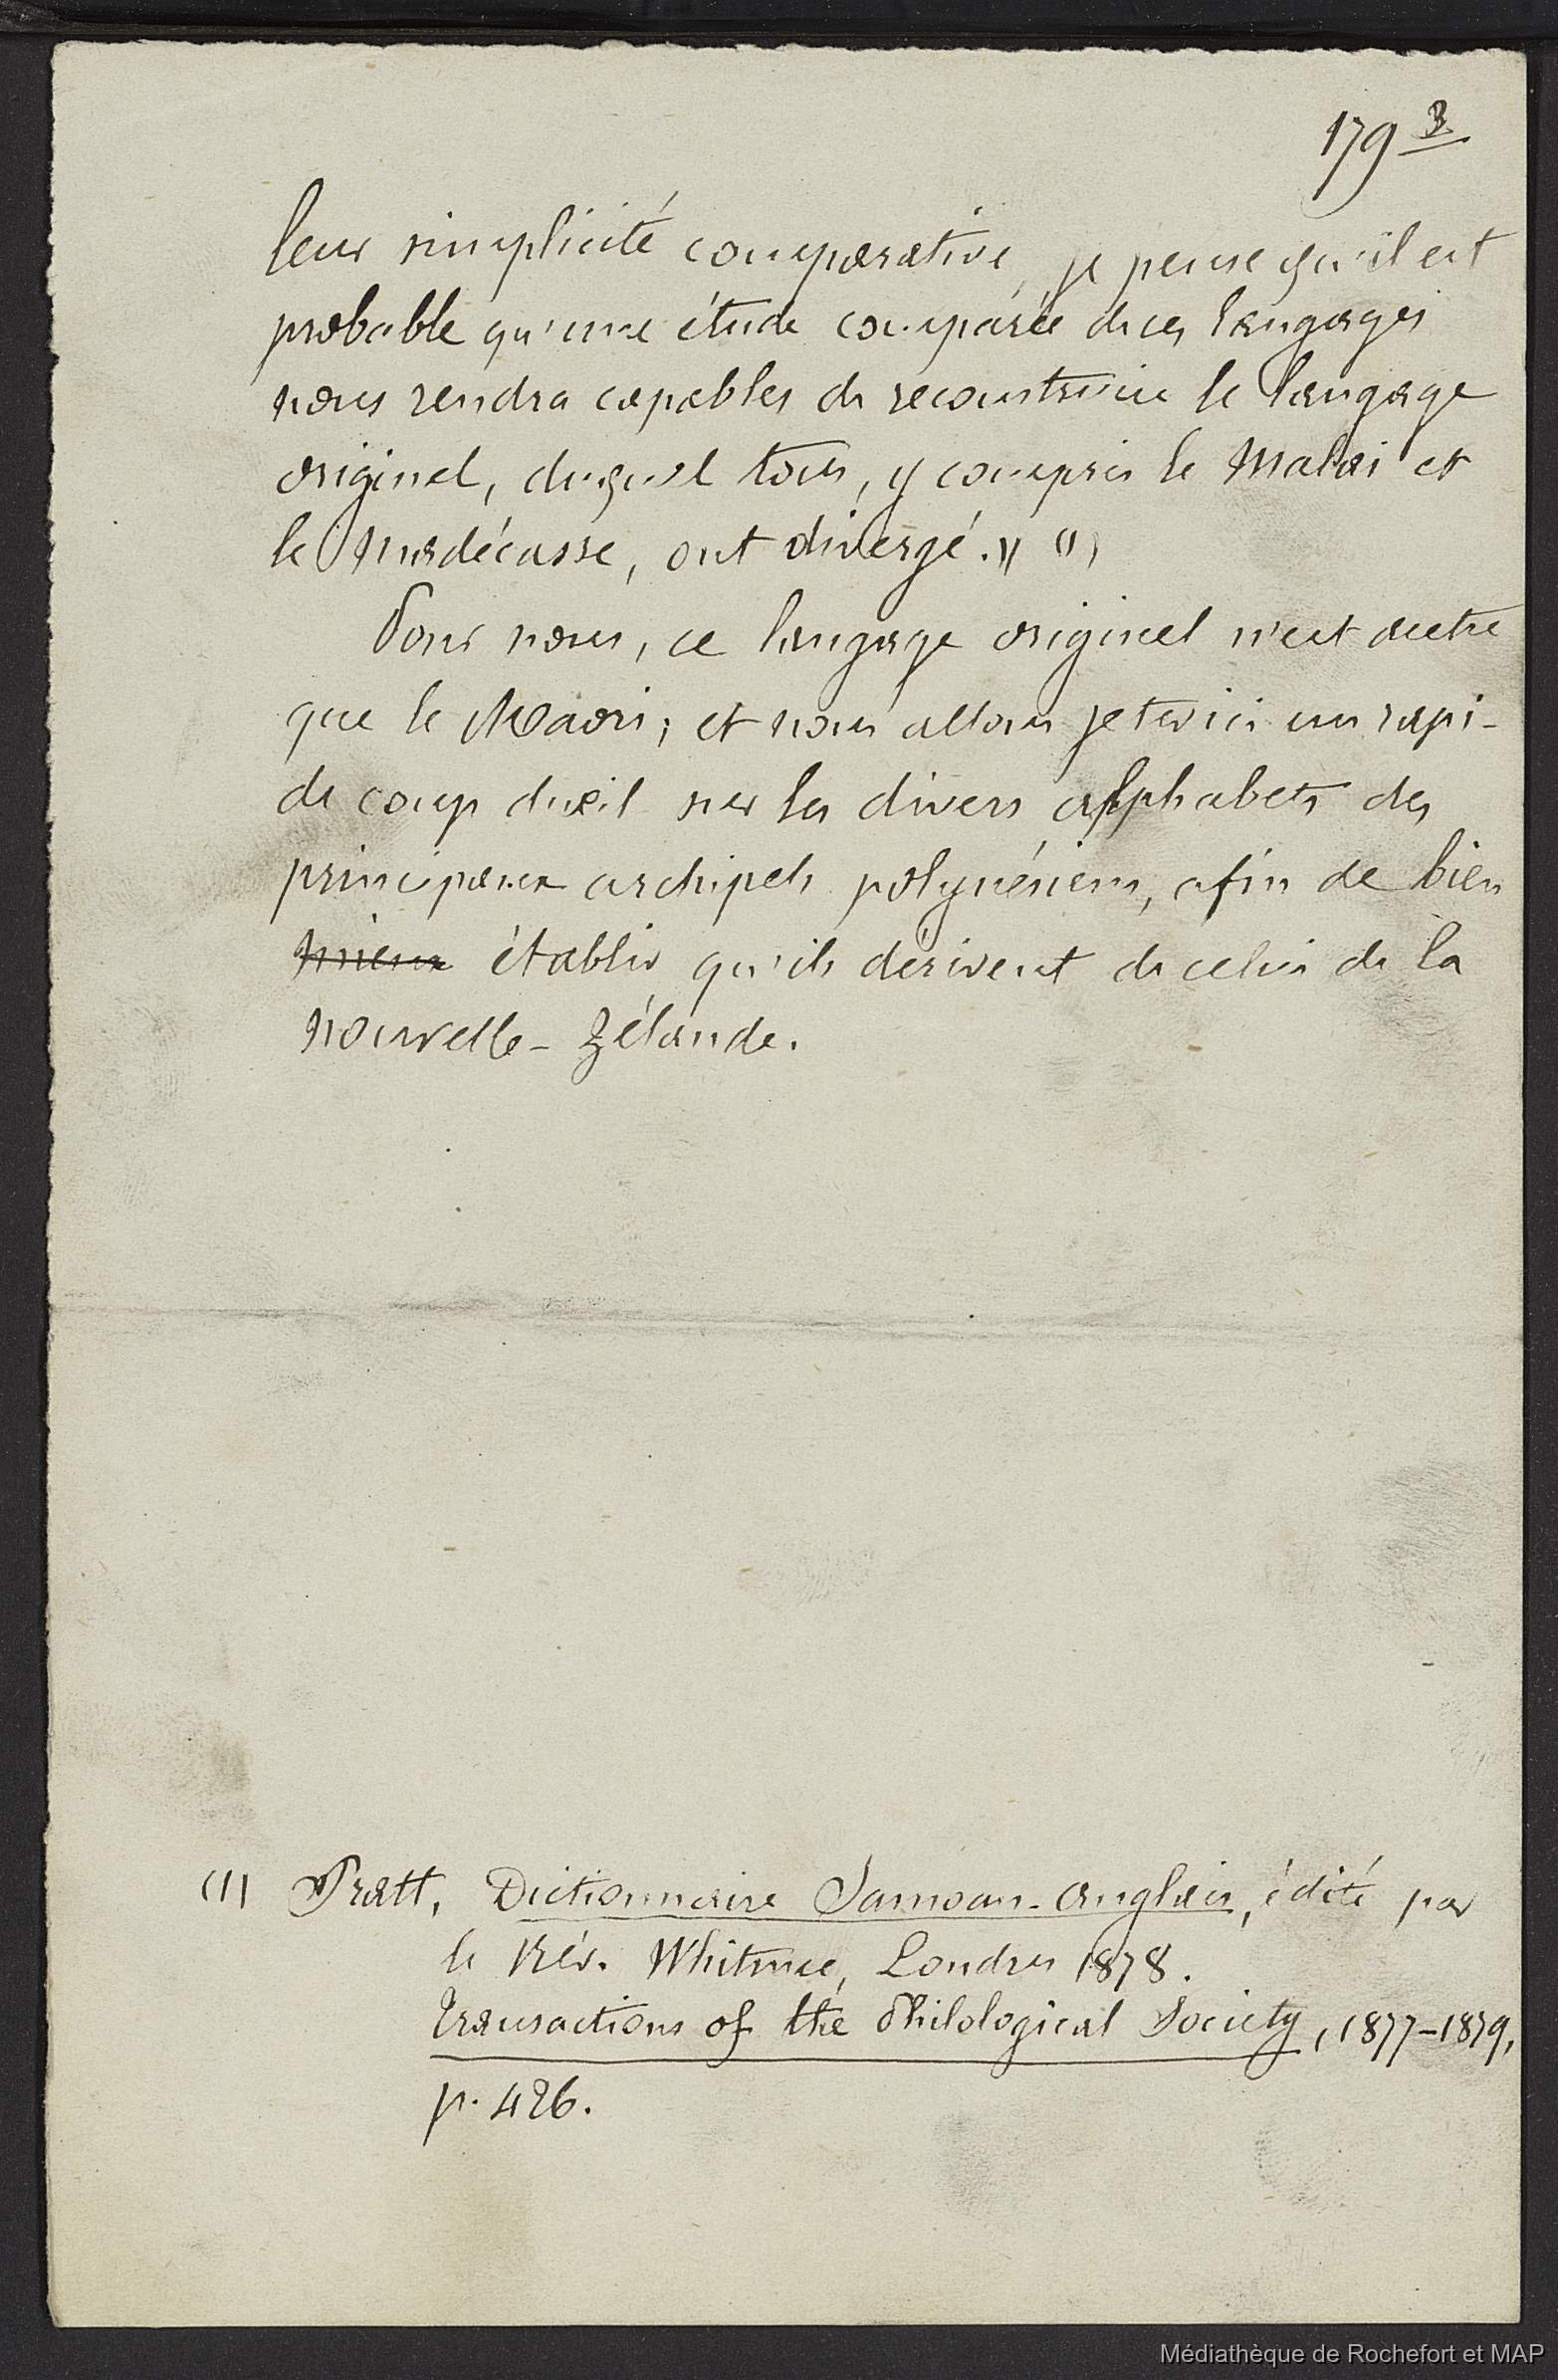 179 3
leur simplicité comparative, je pense qu'il est
probable qu'une étude comparée de ces langages
nous rendra capables de reconstruire le langage
originel, duquel tous, y compris le Malai et
le Madécasse, ont divergé. » (1)
Pour nous, ce langage originel n'est autre
que le Maori; et nous allons jeter ici un rapi-
de coup d'œil sur les divers alphabets des
principaux archipels polynésiens, afin de bien
mieux établir qu'ils dérivent de celui de la
Nouvelle-Zélande.
(1) Pratt, Dictionnaire Samoan-Anglais, édité par
le Rév. Whitmee, Londres 1878.
Transactions of the Philological Society, 1877-1879,
p. 426.
Médiathèque de Rochefort et MAP